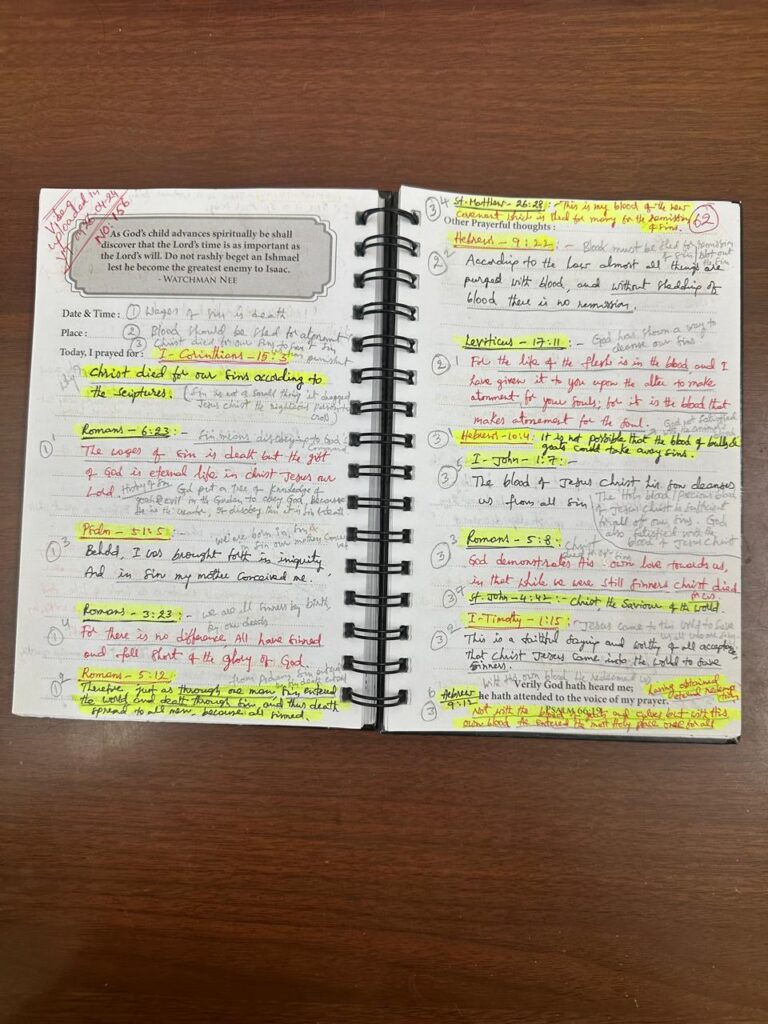 Video
uploaded in
on 26.04.24
NO. 156
As God's child advances spiritually be shall
discover that the Lord's time is as important as
the Lord's will. Do not rashly beget an Ishmael
lest he become the greatest enemy to Isaac.
- WATCHMAN NEE
Date & Time : ① Wages of Sin is death
Place : ② Blood should be shed for atonement
③ Christ died for our Sins
Today, I prayed for: I - Corinthians - 15:3
Christ died for our Sins according to
the Scriptures. (Sin is not a small thing it dragged
Jesus Christ the righteous person to
cross)
Romans - 6:23 :- Sin means disobeying to God's
Command
① The wages of Sin is death but the gift
of God is eternal life in Christ Jesus our
Lord History of Sin God put a tree of knowledge of
good & evil in the Garden to obey God, because
he is the creator,
Psalm - 51:5 :- we are born in Sin &
in Sin our mother Conceived us
① 3 Behold, I was brought forth in iniquity
And in Sin my mother Conceived me.
Romans - 3:23 :- we are all Sinners by birth,
by our deeds
① 4 For there is no difference All have Sinned
and fall Short of the glory of God.
Romans - 5:12 :-
① 2 Therefore, just as through one man Sin entered
the world and death through Sin and thus death
spread to all men, because all Sinned.
③ 4 St. Matthew - 26:28 :- This is my blood of the new
Covenant which is shed for many for the remission
of Sins.
62
Other Prayerful thoughts :
Hebrews - 9:22 :- Blood must be shed for remission
of Sin
② 2 According to the Law almost all things are
purged with blood, and without shedding of
blood there is no remission.
Leviticus - 17:11 :- God has shown a way to
cleanse our Sins
② 1 For the life of the flesh is in the blood, and I
have given it to you upon the alter to make
atonment for your Souls; for it is the blood that
makes atonement for the Soul.
③ Hebrews - 10:4 : It is not possible that the blood of bulls &
goats could take away Sins.
③ 5 I - John - 1:7 :-
The blood of Jesus Christ his Son cleanses
us from all Sin (The Holy blood / precious blood
of Jesus Christ is Sufficient
for all of our Sins. God
also Satisfied with the
blood of Jesus Christ
③ 3 Romans - 5:8 : Christ
died for our Sins
God demonstrates His own love towards us,
in that while we were Still Sinners Christ died
for us
③ 7 St. John - 4:42 :- Christ the Saviour of the world.
I - Timothy - 1:15 :- Jesus came to this world to Save
③ 2 This is a faithful Saying and worthy of all acceptance
that Christ Jesus came into the world to Save
Sinners.
with his own blood He redeemed us
Verily God hath heard me;
he hath attended to the voice of my prayer.
PSALM 66:19
having obtained
eternal redemption
③ 6 Hebrew 9:12 Not with the blood of goats and calves but with his
own blood He entered the most Holy place once for all